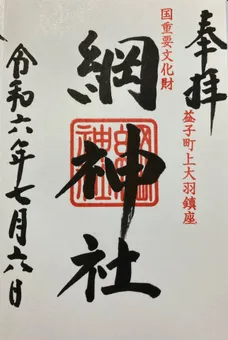 奉拝
国重要文化財
益子町上大羽鎮座
綱神社
令和六年七月六日